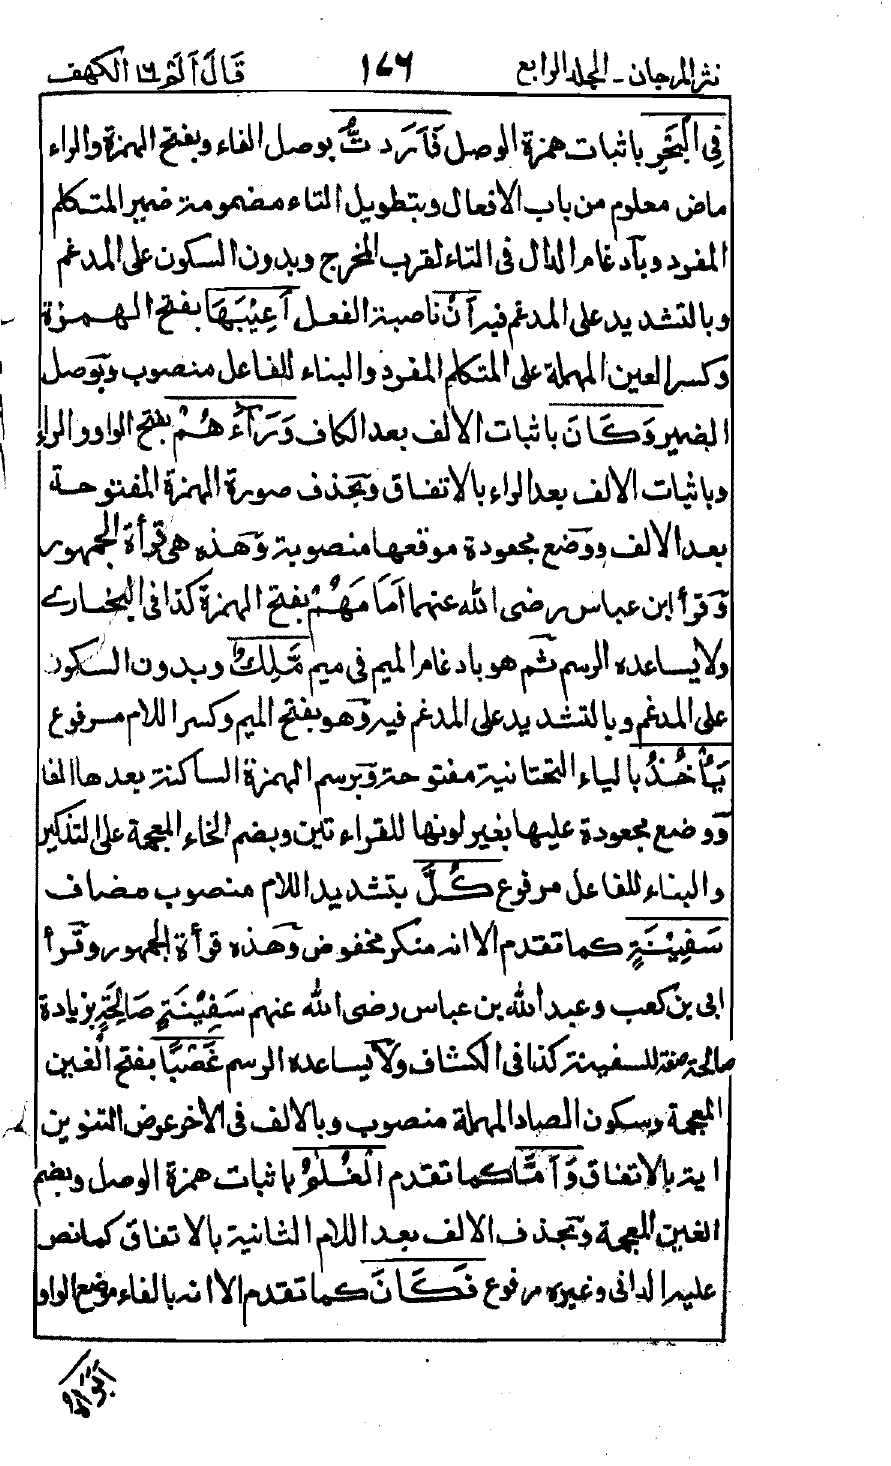 نثر المرجان ـ المجلد الرابع ١٧٦ قَالَ اَلَمْ ١٦ الكهف
فِي الْبَحْرِ باثبات همزة الوصل فَاَرَدتُّ بوصل الفاء وبفتح الهمزة والراء
ماض معلوم من باب الافعال وبتطويل التاء مضمومة ضمير المتكلم
المفرد وبادغام الدال فى التاء لقرب المخرج وبدون السكون على المدغم
وبالتشديد على المدغم فيه اَنْ ناصبة الفعل اَعِيْبَهَا بفتح الهمزة
وكسر العين المهملة على المتكلم المفرد والبناء للفاعل منصوب وبوصل
الضمير وَكَانَ باثبات الالف بعد الكاف وَرَآءَهُمْ بفتح الواو والراء
وباثبات الالف بعد الراء بالاتفاق وبحذف صورة الهمزة المفتوحة
بعد الالف ووضع مجعودة موقعها منصوبة وهذه هى قرأة الجمهور
وقرأ ابن عباس رضى الله عنهما اَمَامَهُمْ بفتح الهمزة كذا فى البخارى
ولا يساعده الرسم ثم هو بادغام الميم فى ميم مَّلِكٌ وبدون السكون
على المدغم وبالتشديد على المدغم فيه وهو بفتح الميم وكسر اللام مرفوع
يَأْخُذُ بالياء التحتانية مفتوحة وبرسم الهمزة الساكنة بعدها الفا
ووضع مجعودة عليها بغير لونها للقراءتين وبضم الخاء المعجمة على التذكير
والبناء للفاعل مرفوع كُلَّ بتشديد اللام منصوب مضاف
سَفِيْنَةٍ كما تقدم الا انه منكر مخفوض وهذه قرأة الجمهور وقرأ
ابى بن كعب وعبد الله بن عباس رضى الله عنهم سَفِيْنَةٍ صَالِحَةٍ بزيادة
صالحة صفة للسفينة كذا فى الكشاف ولا يساعده الرسم غَصْبًا بفتح الغين
المعجمة وسكون الصاد المهملة منصوب وبالالف فى الاخر عوض التنوين
اية بالاتفاق وَاَمَّا كما تقدم الْغُلٰمُ باثبات همزة الوصل وبضم
الغين المعجمة وبحذف الالف بعد اللام الثانية بالاتفاق كما نص
عليه الدانى وغيره مرفوع فَكَانَ كما تقدم الا انه بالفاء موضع الواو